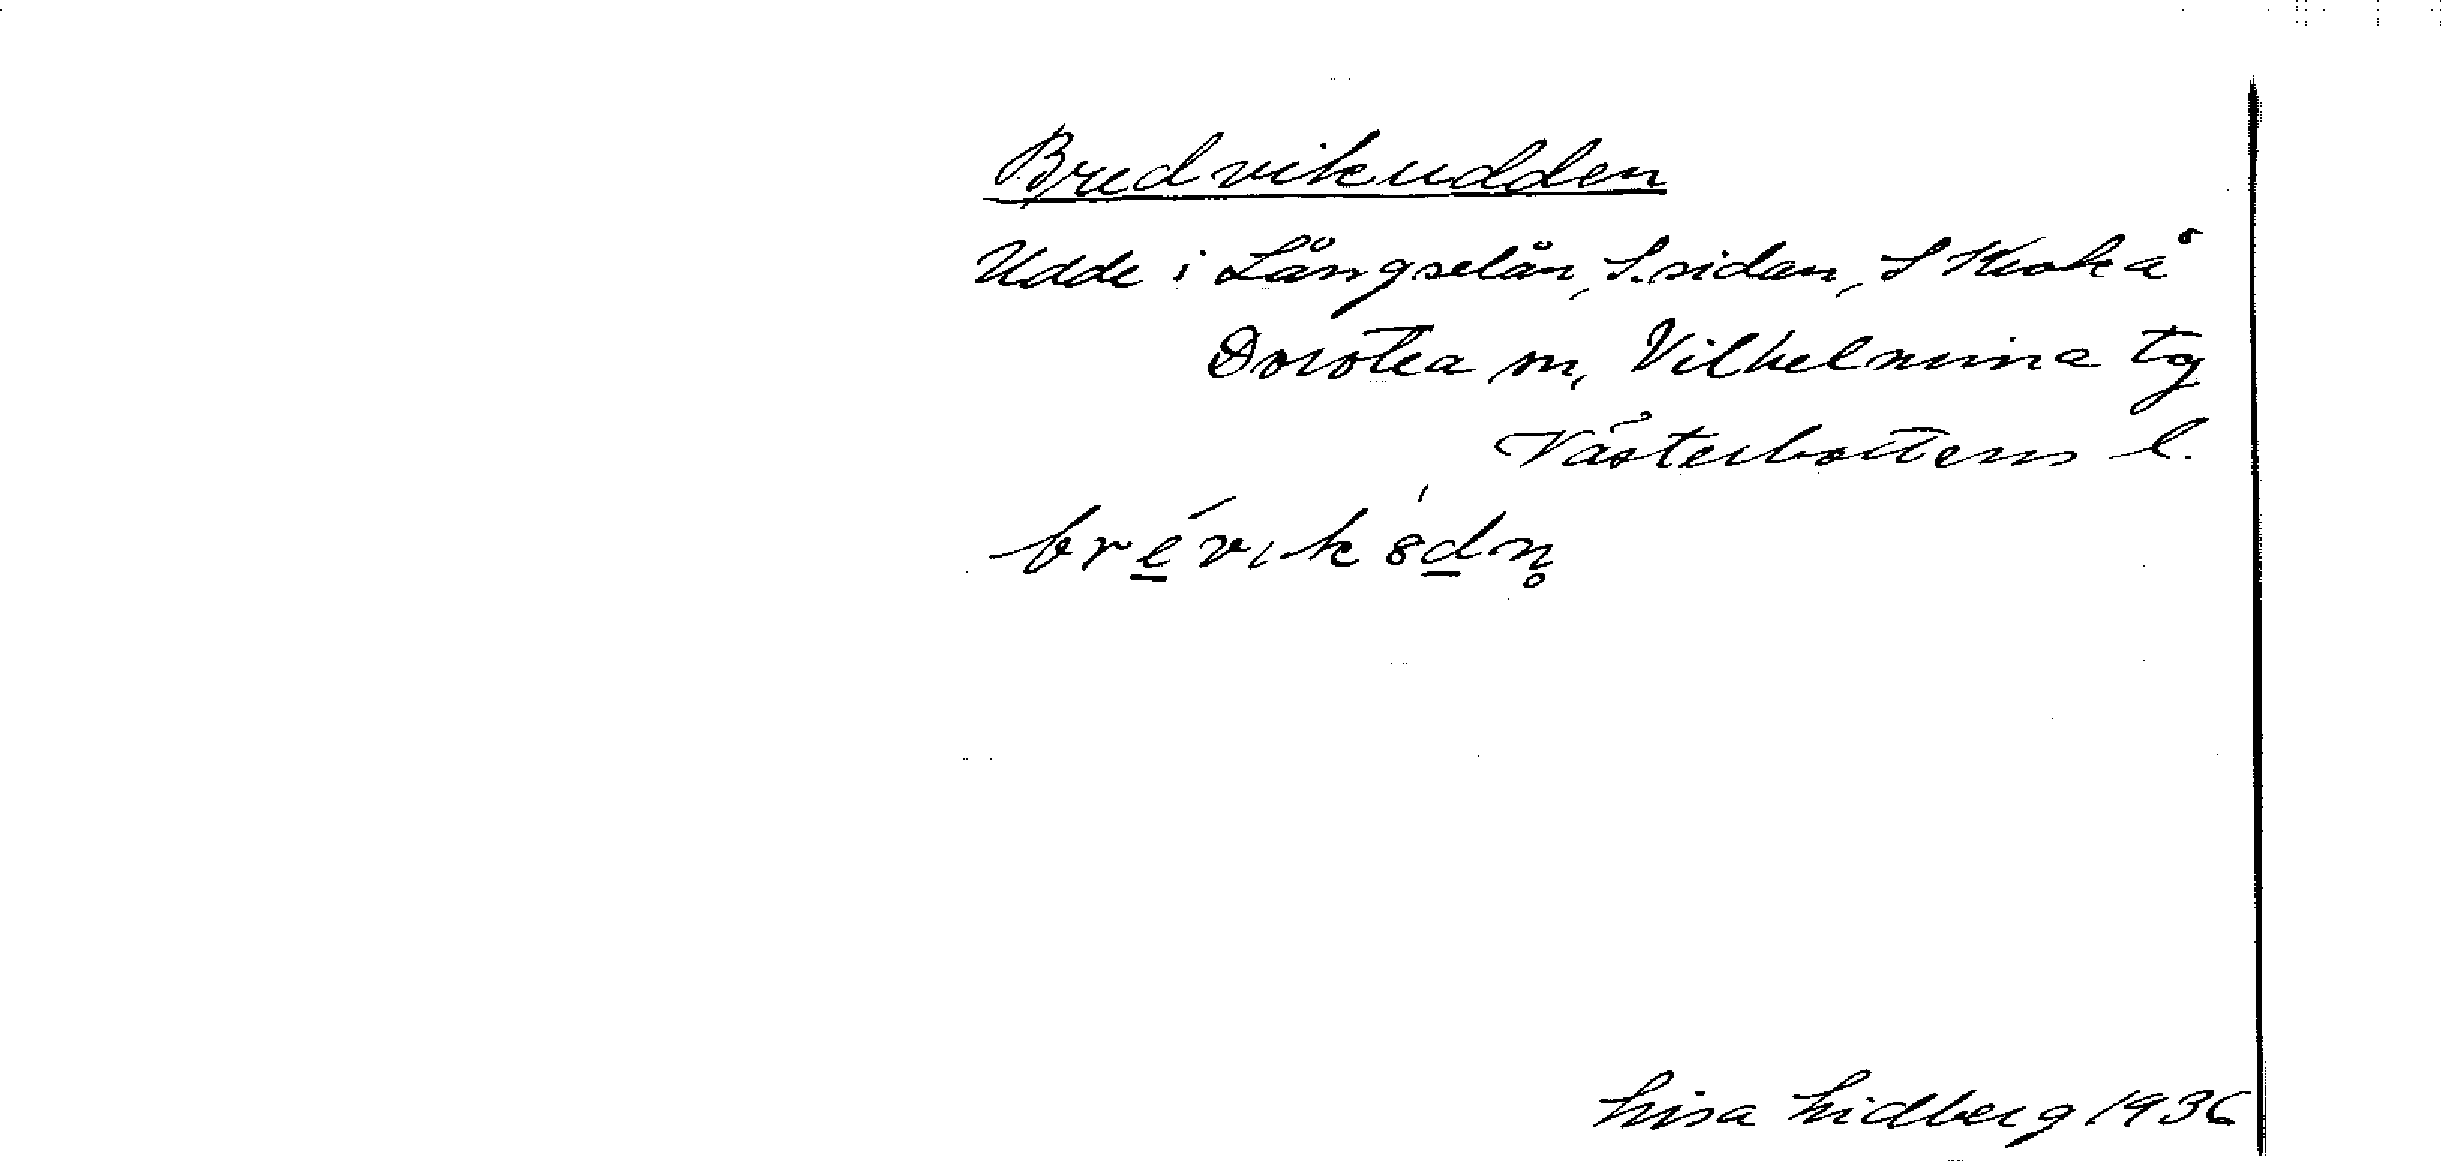 Bredvikudden
Udde i Långselån, S. sidan, S
Dorotea sn, Vilhelmina tg
Västerbottens l.
Lisa Lidberg 1936